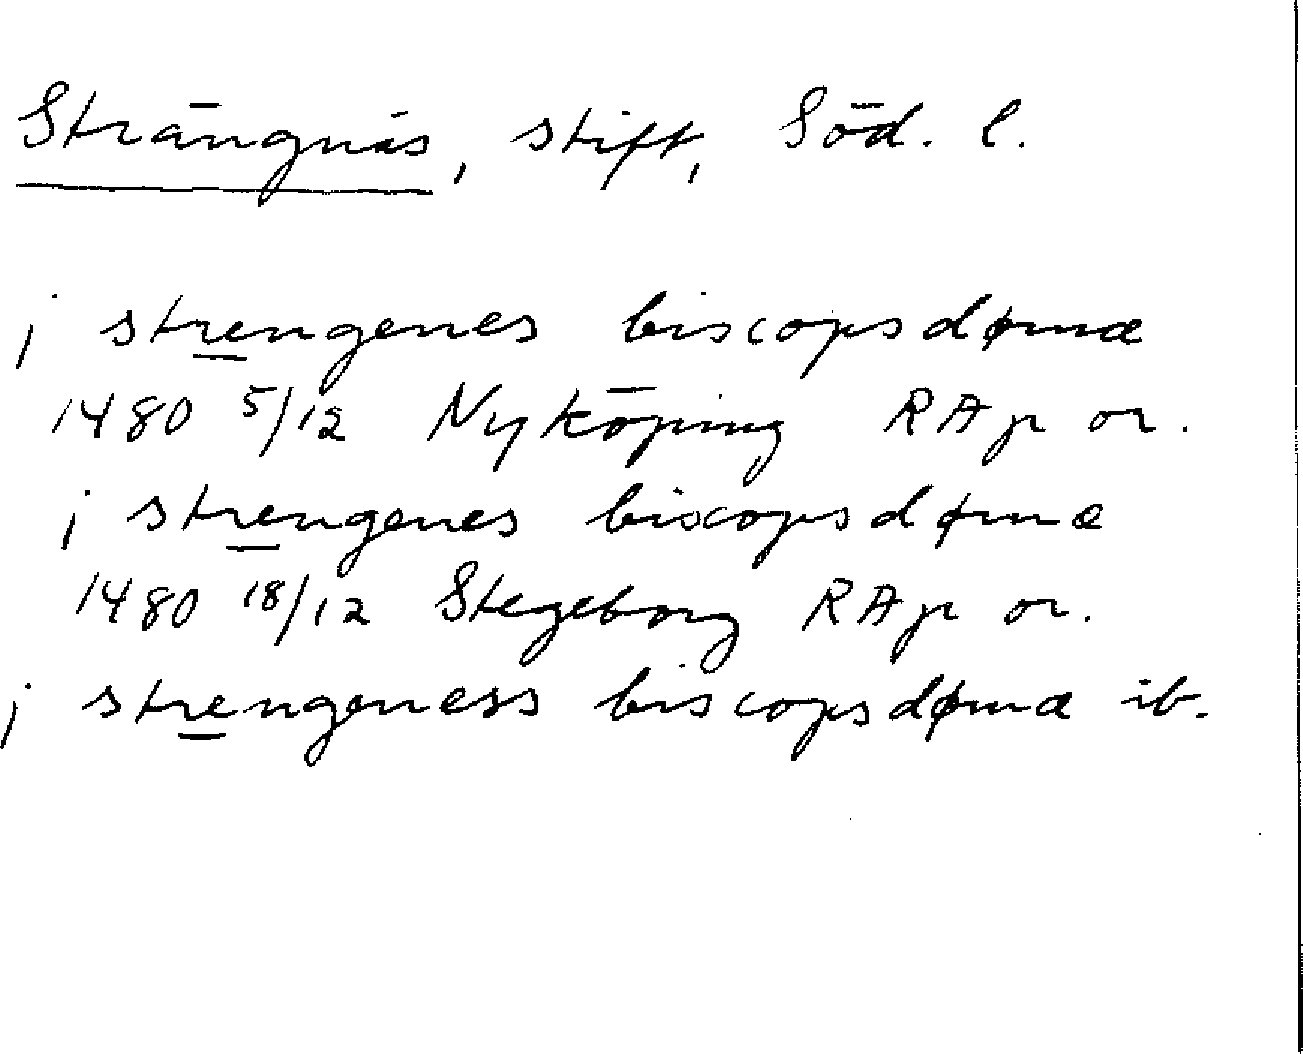 Strängnäs, stift, Söd. l.
j strengenes biscopsdømæ
1480 5/12 Nyköping RAp or.
j strengenes biscopsdømæ
1480 18/12 Stegeborg RAp or.
j strengeness biscopsdømæ ib.